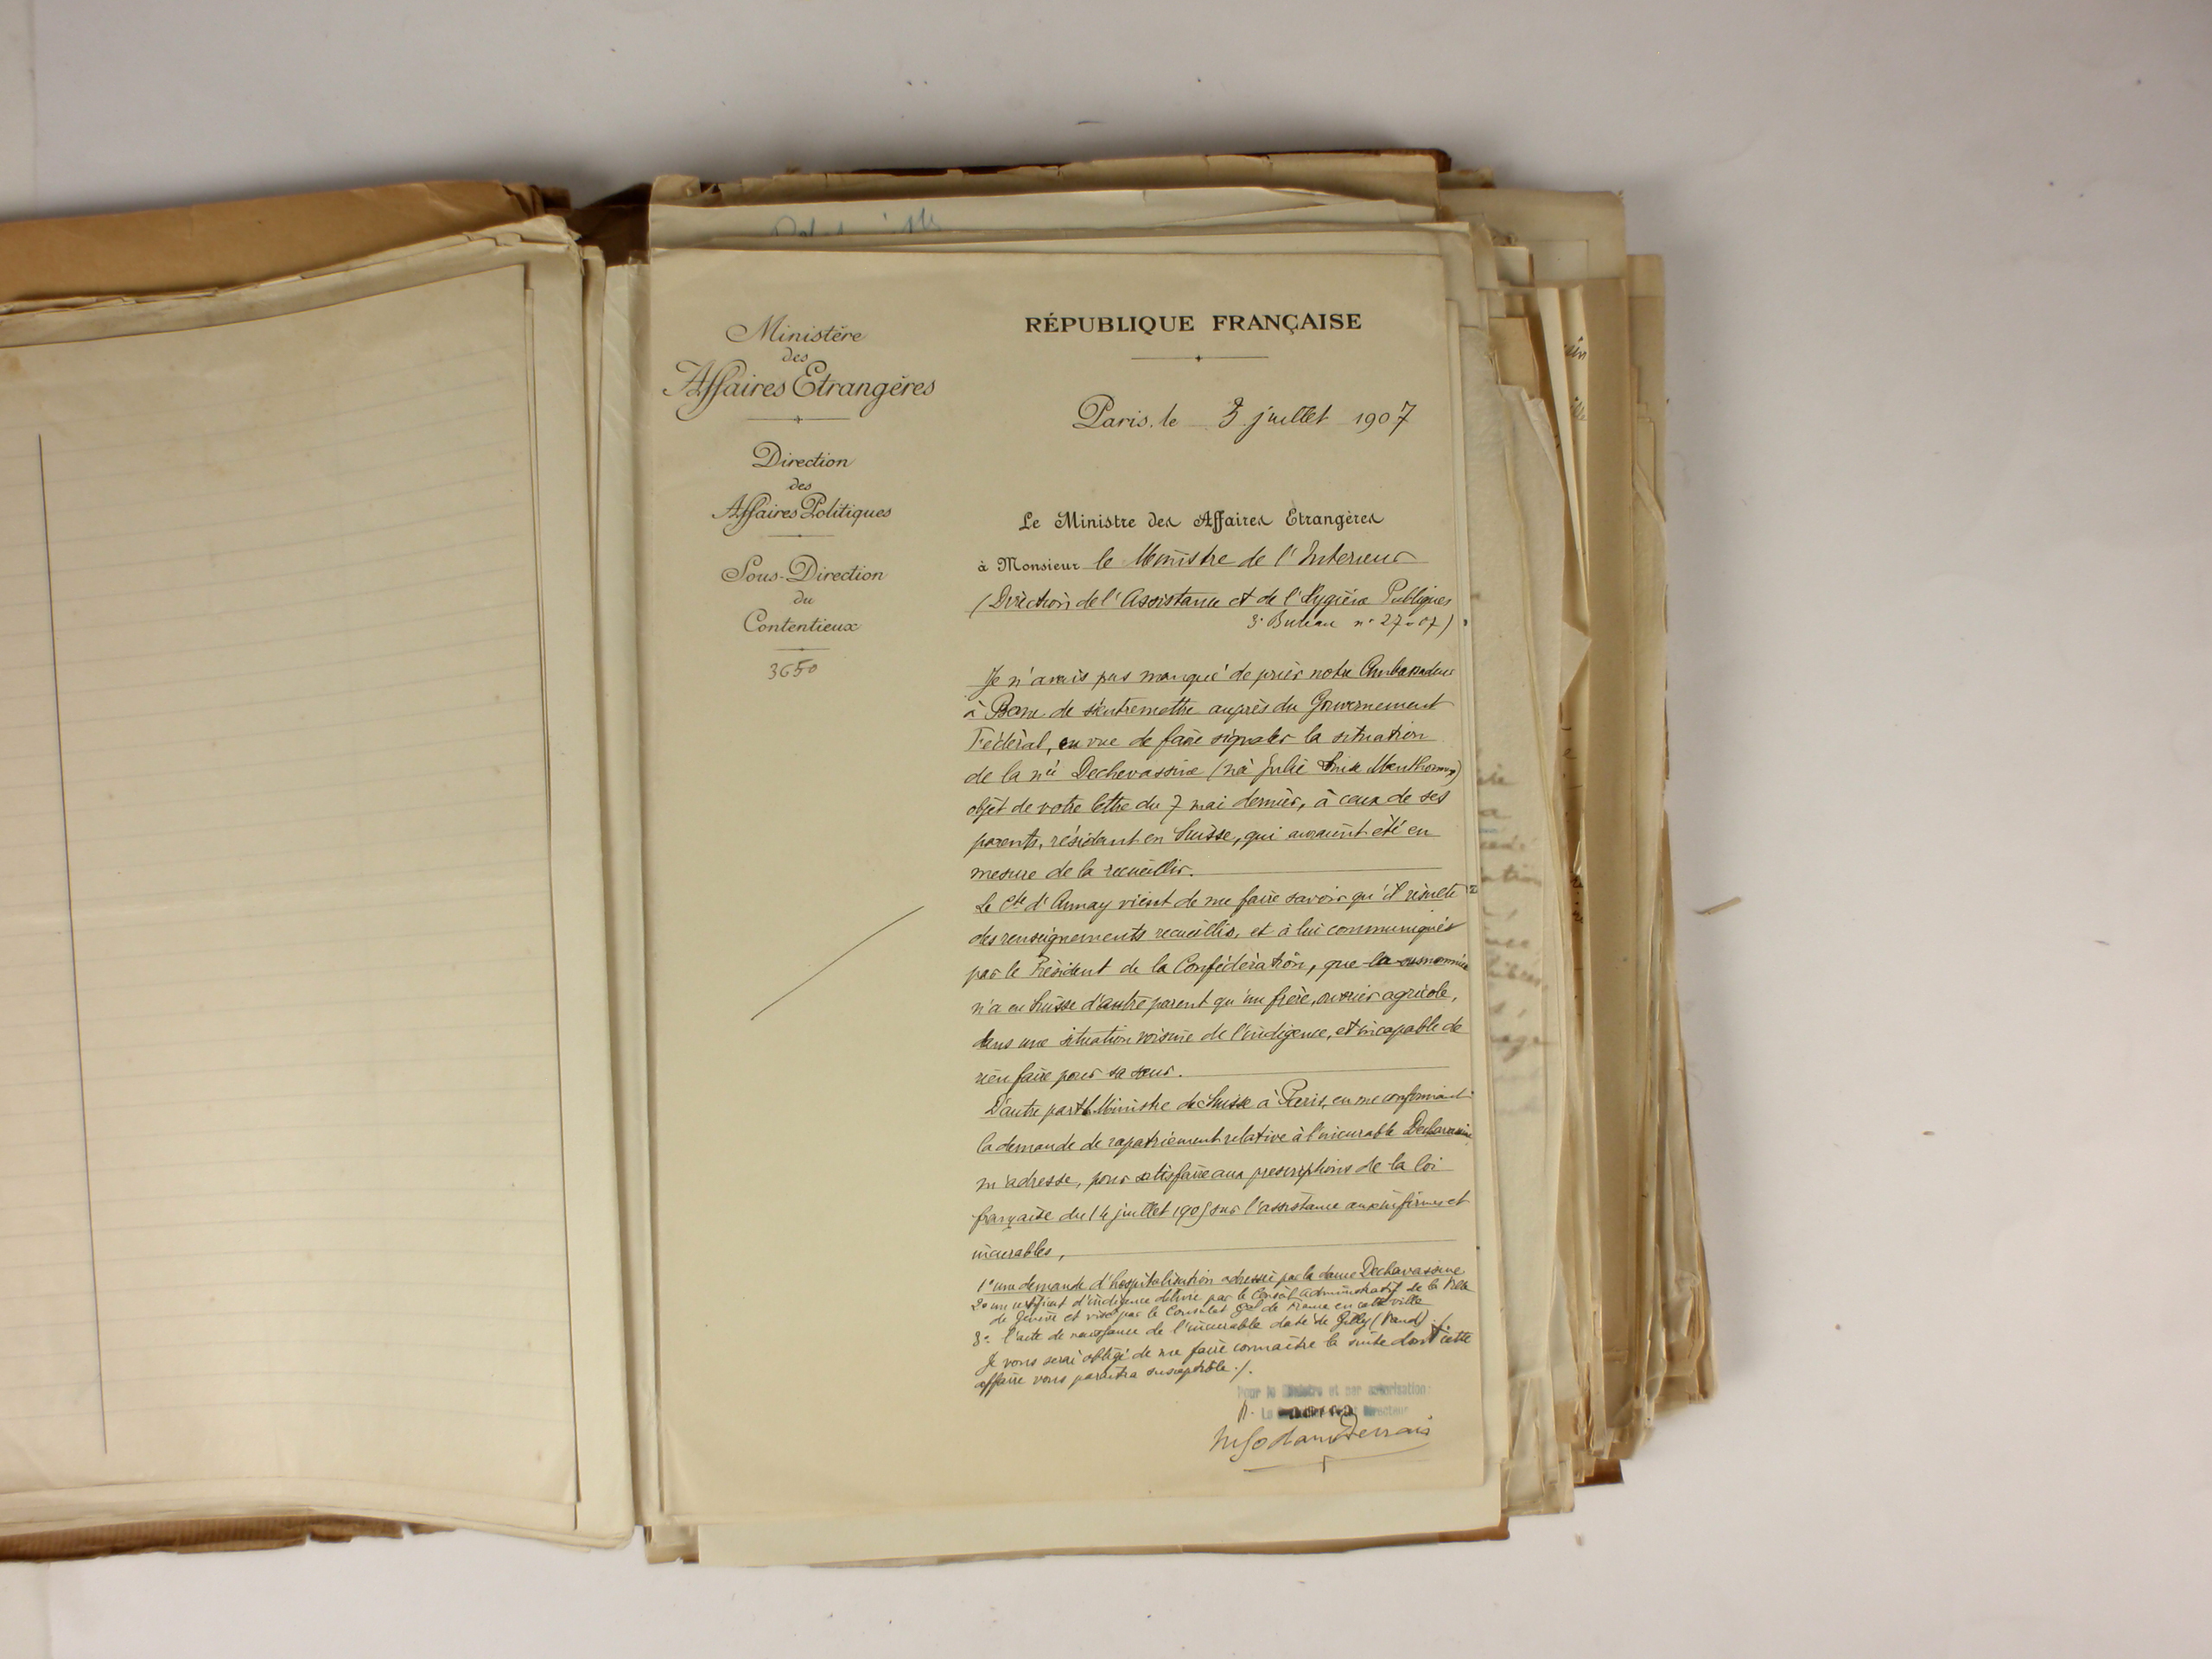 Ministère
des
Affaires Etrangères
Direction
des
Affaires Politiques
Sous-Direction
du
Contentieux
3650
RÉPUBLIQUE FRANÇAISE
Paris, le 3 juillet 1907
Le Ministre des Affaires Etrangères
à Monsieur le Ministre de l'Interieur
(Direction de l'Assistance et de l'Hygiène Publiques
3e Bureau n° 27-07)
Je n'avais pas manqué de prier notre Ambassadeur
à Berne de s'entremettre auprès du Gouvernement
Fédéral, en vue de faire signaler la situation
de la née Dechevassine (née Julie Menthonnex)
objet de votre lettre du 7 mai dernier, à ceux de ses
parents, résidant en Suisse, qui auraient été en
mesure de la recueillir.
Le Cte d'Aunay vient de me faire savoir qu'il résulte
des renseignements recueillis, et à lui communiqués
par le Président de la Confédération, que la susnommée
n'a en Suisse d'autre parent qu'un frère, ouvrier agricole,
dans une situation voisine de l'indigence, et incapable de
rien faire pour sa soeur.
D'autre part le Ministre de Suisse à Paris, en me confirmant
la demande de rapatriement relative à l'incurable Dechavassine
m'adresse, pour satisfaire aux prescriptions de la loi
française du 14 juillet 1905 sur l'assistance aux infirmes et
incurables,
1° une demande d'hospitalisation adressée par la dame Dechavassine
2° un certificat d'indigence délivré par le Conseil administratif de la Ville
de Genève et visé par le Consulat Gal de France en cette ville
3° l'acte de naissance de l'incurable daté de Gilly (Vaud) ./.
Je vous serai obligé de me faire connaître la suite dont cette
affaire vous paraîtra susceptible ./.
Pour le Ministre et par autorisation:
Directeur